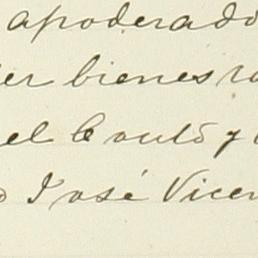 apoderado
er bienes ra
el le oculó y
José Vicen